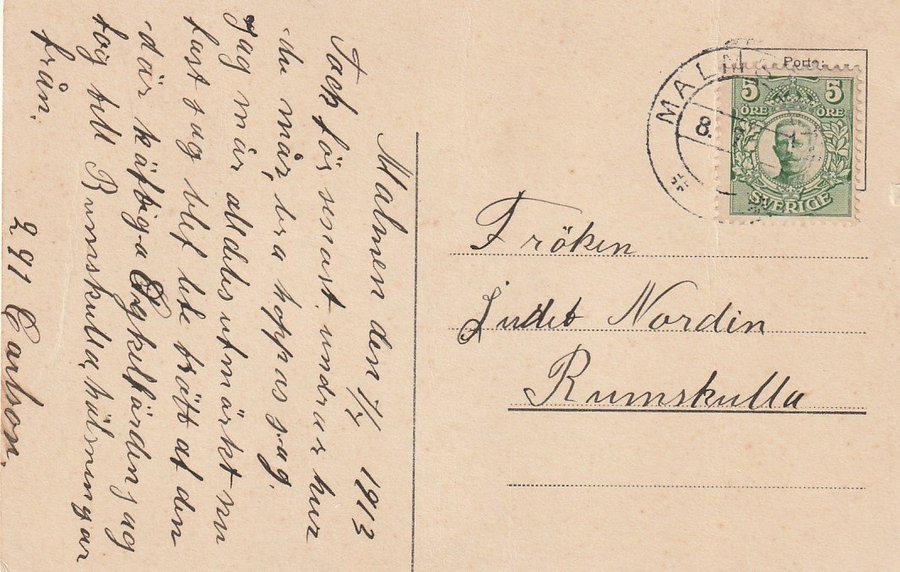 Malmen den 7/7 1913
Tack för senast. undrar hur
du mår, bra hoppas jag.
Jag mår alldeles utmärkt nu
fast jag blef lite trött af den
där häftiga Cykelfärden jag
tog till Rumskulla, hälsningar
från.
291 Carlson.
Porto.
MALM
8.
5 5
ÖRE ÖRE
SVERIGE
Fröken
Judit Nordin
Rumskulla